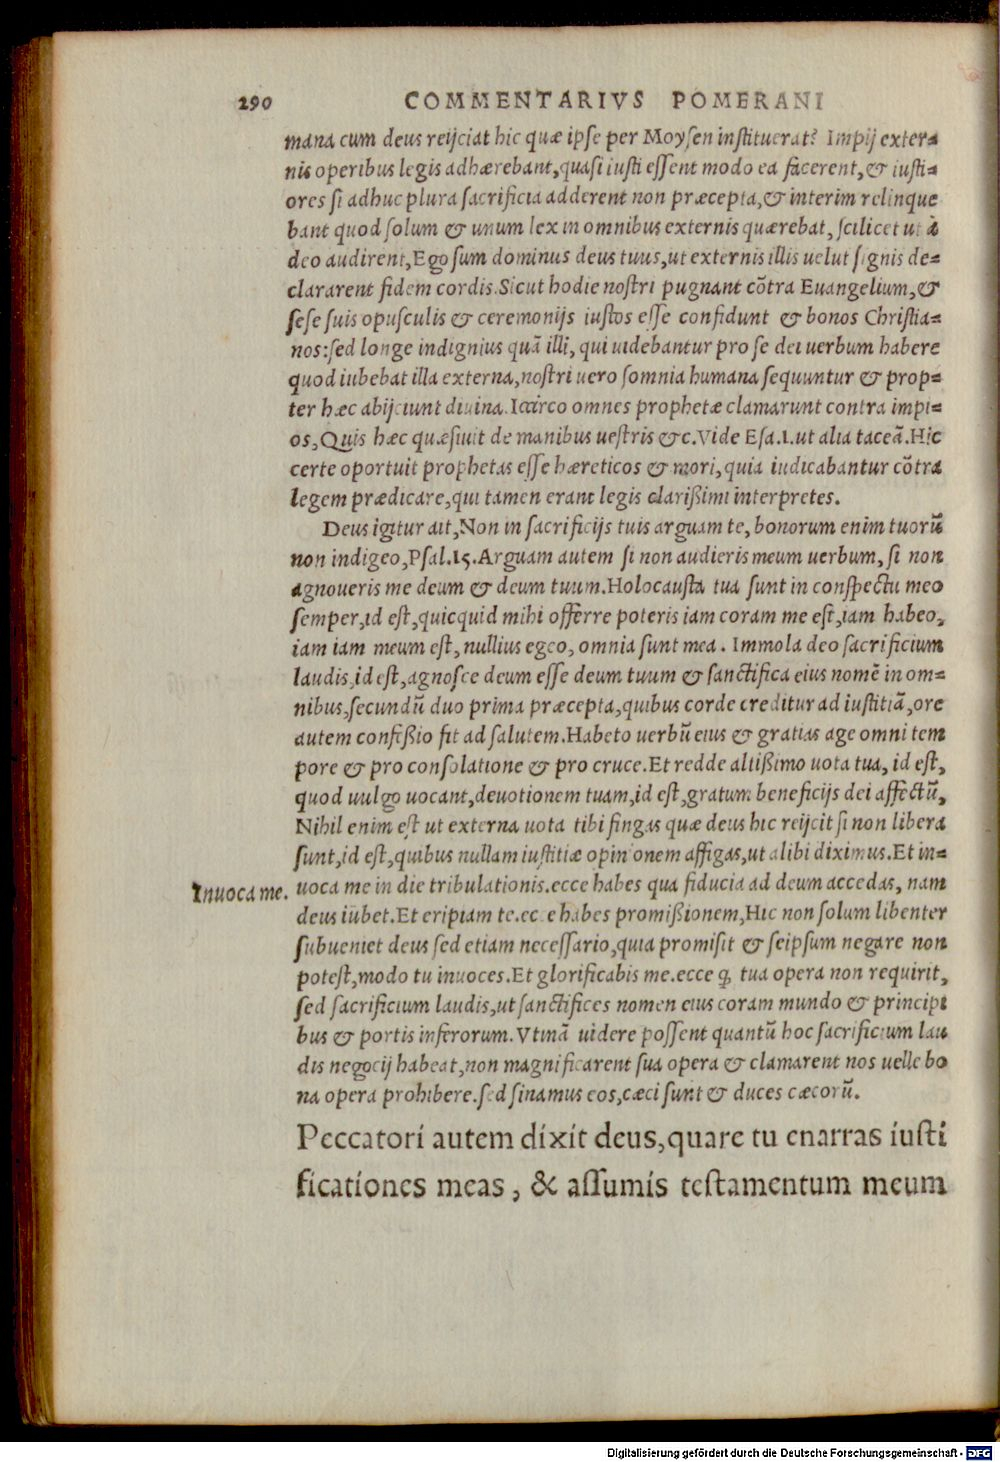 290 COMMENTARIVS POMERANI
mana cum deus reijciat hic quæ ipse per Moysen instituerat? Impij exter=
nis operibus legis adhærebant,quasi iusti essent modo ea facerent,& iusti=
ores si adhuc plura sacrificia adderent non præcepta,& interim relinque
bant quod solum & unum lex in omnibus externis quærebat, scilicet ut à
deo audirent,Ego sum dominus deus tuus,ut externis illis uelut signis de=
clararent fidem cordis.Sicut hodie nostri pugnant cõtra Euangelium,&
sese suis opusculis & ceremonijs iustos esse confidunt & bonos Christia=
nos:sed longe indignius quã illi, qui uidebantur pro se dei uerbum habere
quod iubebat illa externa,nostri uero somnia humana sequuntur & prop=
ter hæc abijciunt diuina.Iccirco omnes prophetæ clamarunt contra impi=
os,Quis hæc quæsiuit de manibus uestris &c.Vide Esa.1.ut alia taceã.Hic
certe oportuit prophetas esse hæreticos & mori,quia iudicabantur cõtra
legem prædicare,qui tamen erant legis clarißimi interpretes.
Deus igitur ait,Non in sacrificijs tuis arguam te, bonorum enim tuorũ
non indigeo,Psal.15.Arguam autem si non audieris meum uerbum, si non
agnoueris me deum & deum tuum.Holocausta tua sunt in conspectu meo
semper,id est,quicquid mihi offerre poteris iam coram me est,iam habeo,
iam iam meum est, nullius egeo, omnia sunt mea. Immola deo sacrificium
laudis,id est,agnosce deum esse deum tuum & sanctifica eius nomẽ in om=
nibus,secundũ duo prima præcepta,quibus corde creditur ad iustitiã,ore
autem confeßio fit ad salutem.Habeto uerbũ eius & gratias age omni tem
pore & pro consolatione & pro cruce.Et redde altißimo uota tua, id est,
quod uulgo uocant,deuotionem tuam,id est,gratum beneficijs dei affectũ,
Nihil enim est ut externa uota tibi fingas quæ deus hic reijcit si non libera
sunt,id est,quibus nullam iustitiæ opinionem affigas,ut alibi diximus.Et in=
Inuoca me. uoca me in die tribulationis.ecce habes qua fiducia ad deum accedas, nam
deus iubet.Et eripiam te.ecce habes promißionem,Hic non solum libenter
subueniet deus sed etiam necessario,quia promisit & seipsum negare non
potest,modo tu inuoces.Et glorificabis me.ecce ꝙ tua opera non requirit,
sed sacrificium laudis,ut sanctifices nomen eius coram mundo & principi
bus & portis inferorum.Vtinã uidere possent quantũ hoc sacrificium lau
dis negocij habeat,non magnificarent sua opera & clamarent nos uelle bo
na opera prohibere.sed sinamus eos,cæci sunt & duces cæcorũ.
Peccatori autem dixit deus,quare tu enarras iusti
ficationes meas, & assumis testamentum meum
Digitalisierung gefördert durch die Deutsche Forschungsgemeinschaft - DFG